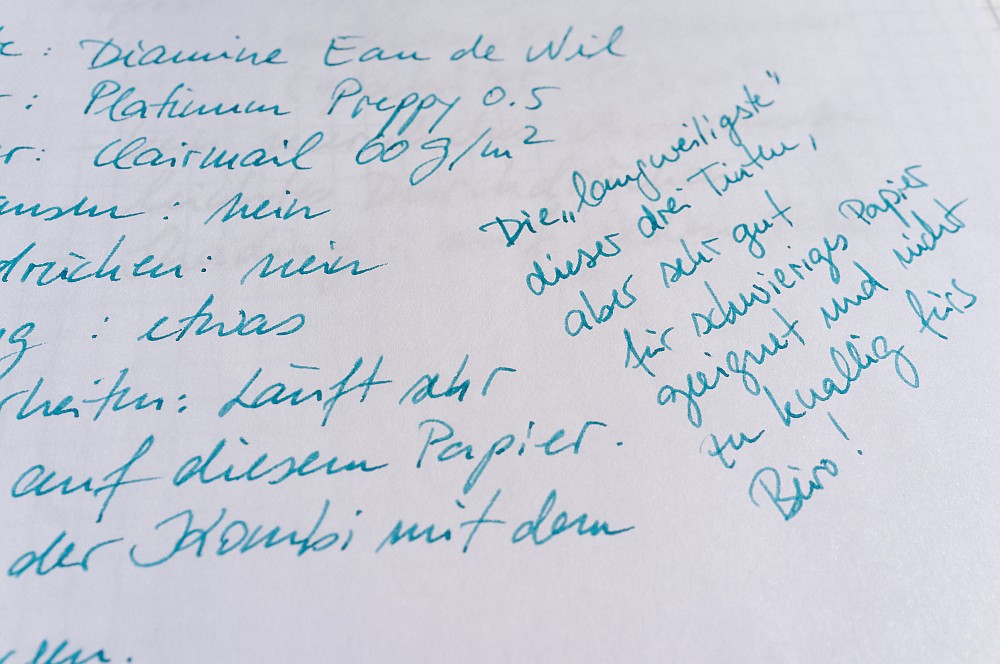 : Diamine Eau de Nil
: Platinum Preppy 0.5
: Clairmail 60 g/m²
: nein
drücken: nein
: etwas
Läuft sehr
auf diesem Papier.
der Kombi mit dem
Die „langweiligste"
dieser drei Tinten,
aber sehr gut
für schwieriges Papier
geeignet und nicht
zu knallig fürs
Büro!